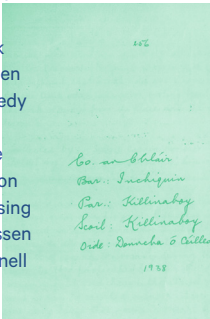 k
en
edy
e
on
sing
ssen
nell
206
Co. an Chláir
Bar.: Inchiquin
Par.: Killinaboy
Scoil: Killinaboy
Oide: Donncha Ó
1938